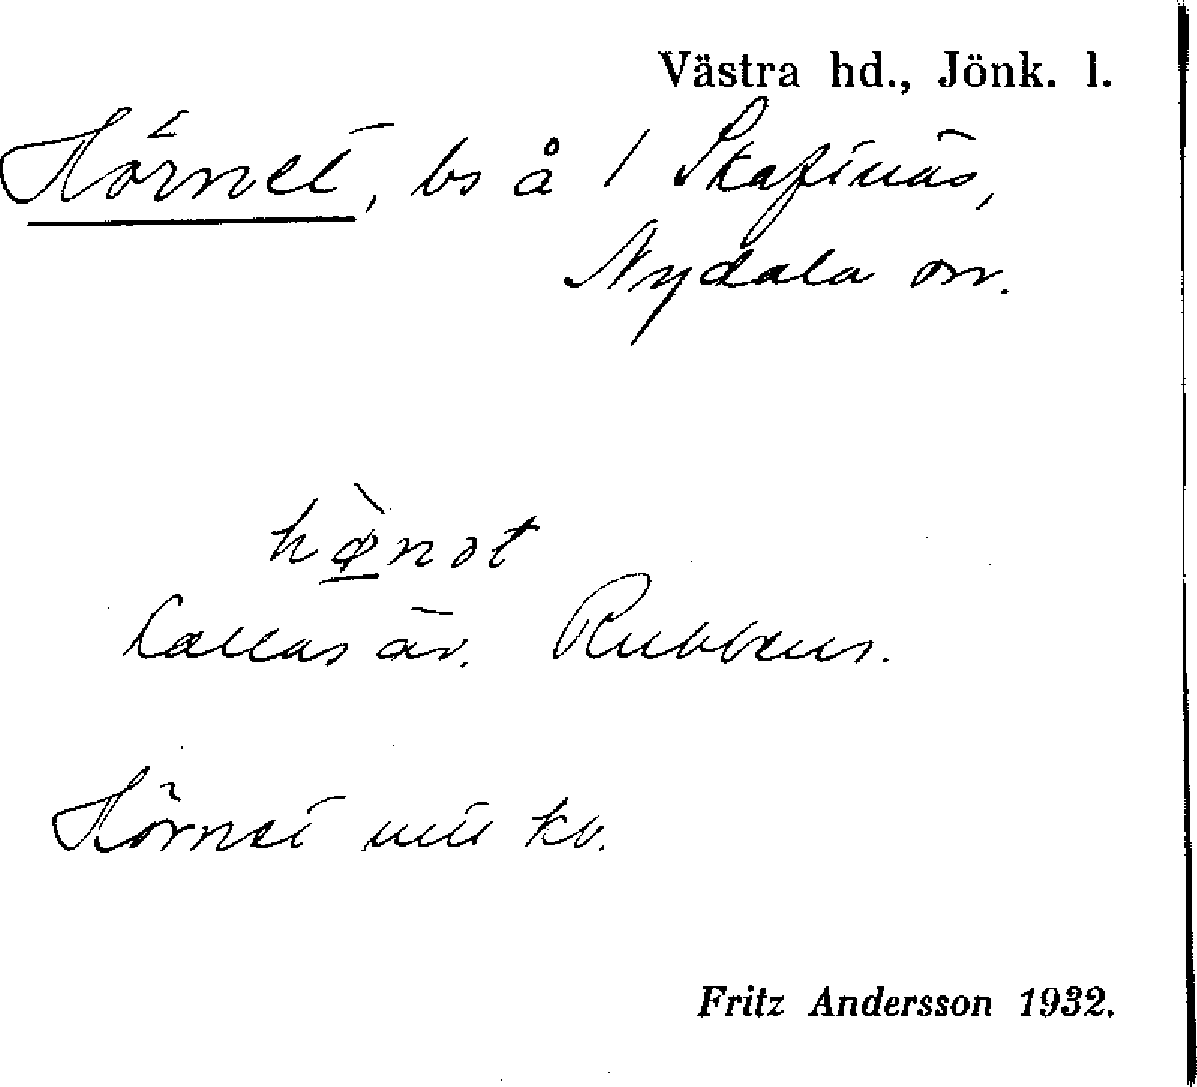 Västra hd., Jönk. l.
Hörnet, bs å 1 Skaftnäs,
Nydala sn.
hø̀nət
Kallas äv.
Hörnet utt kv.
Fritz Andersson 1932.